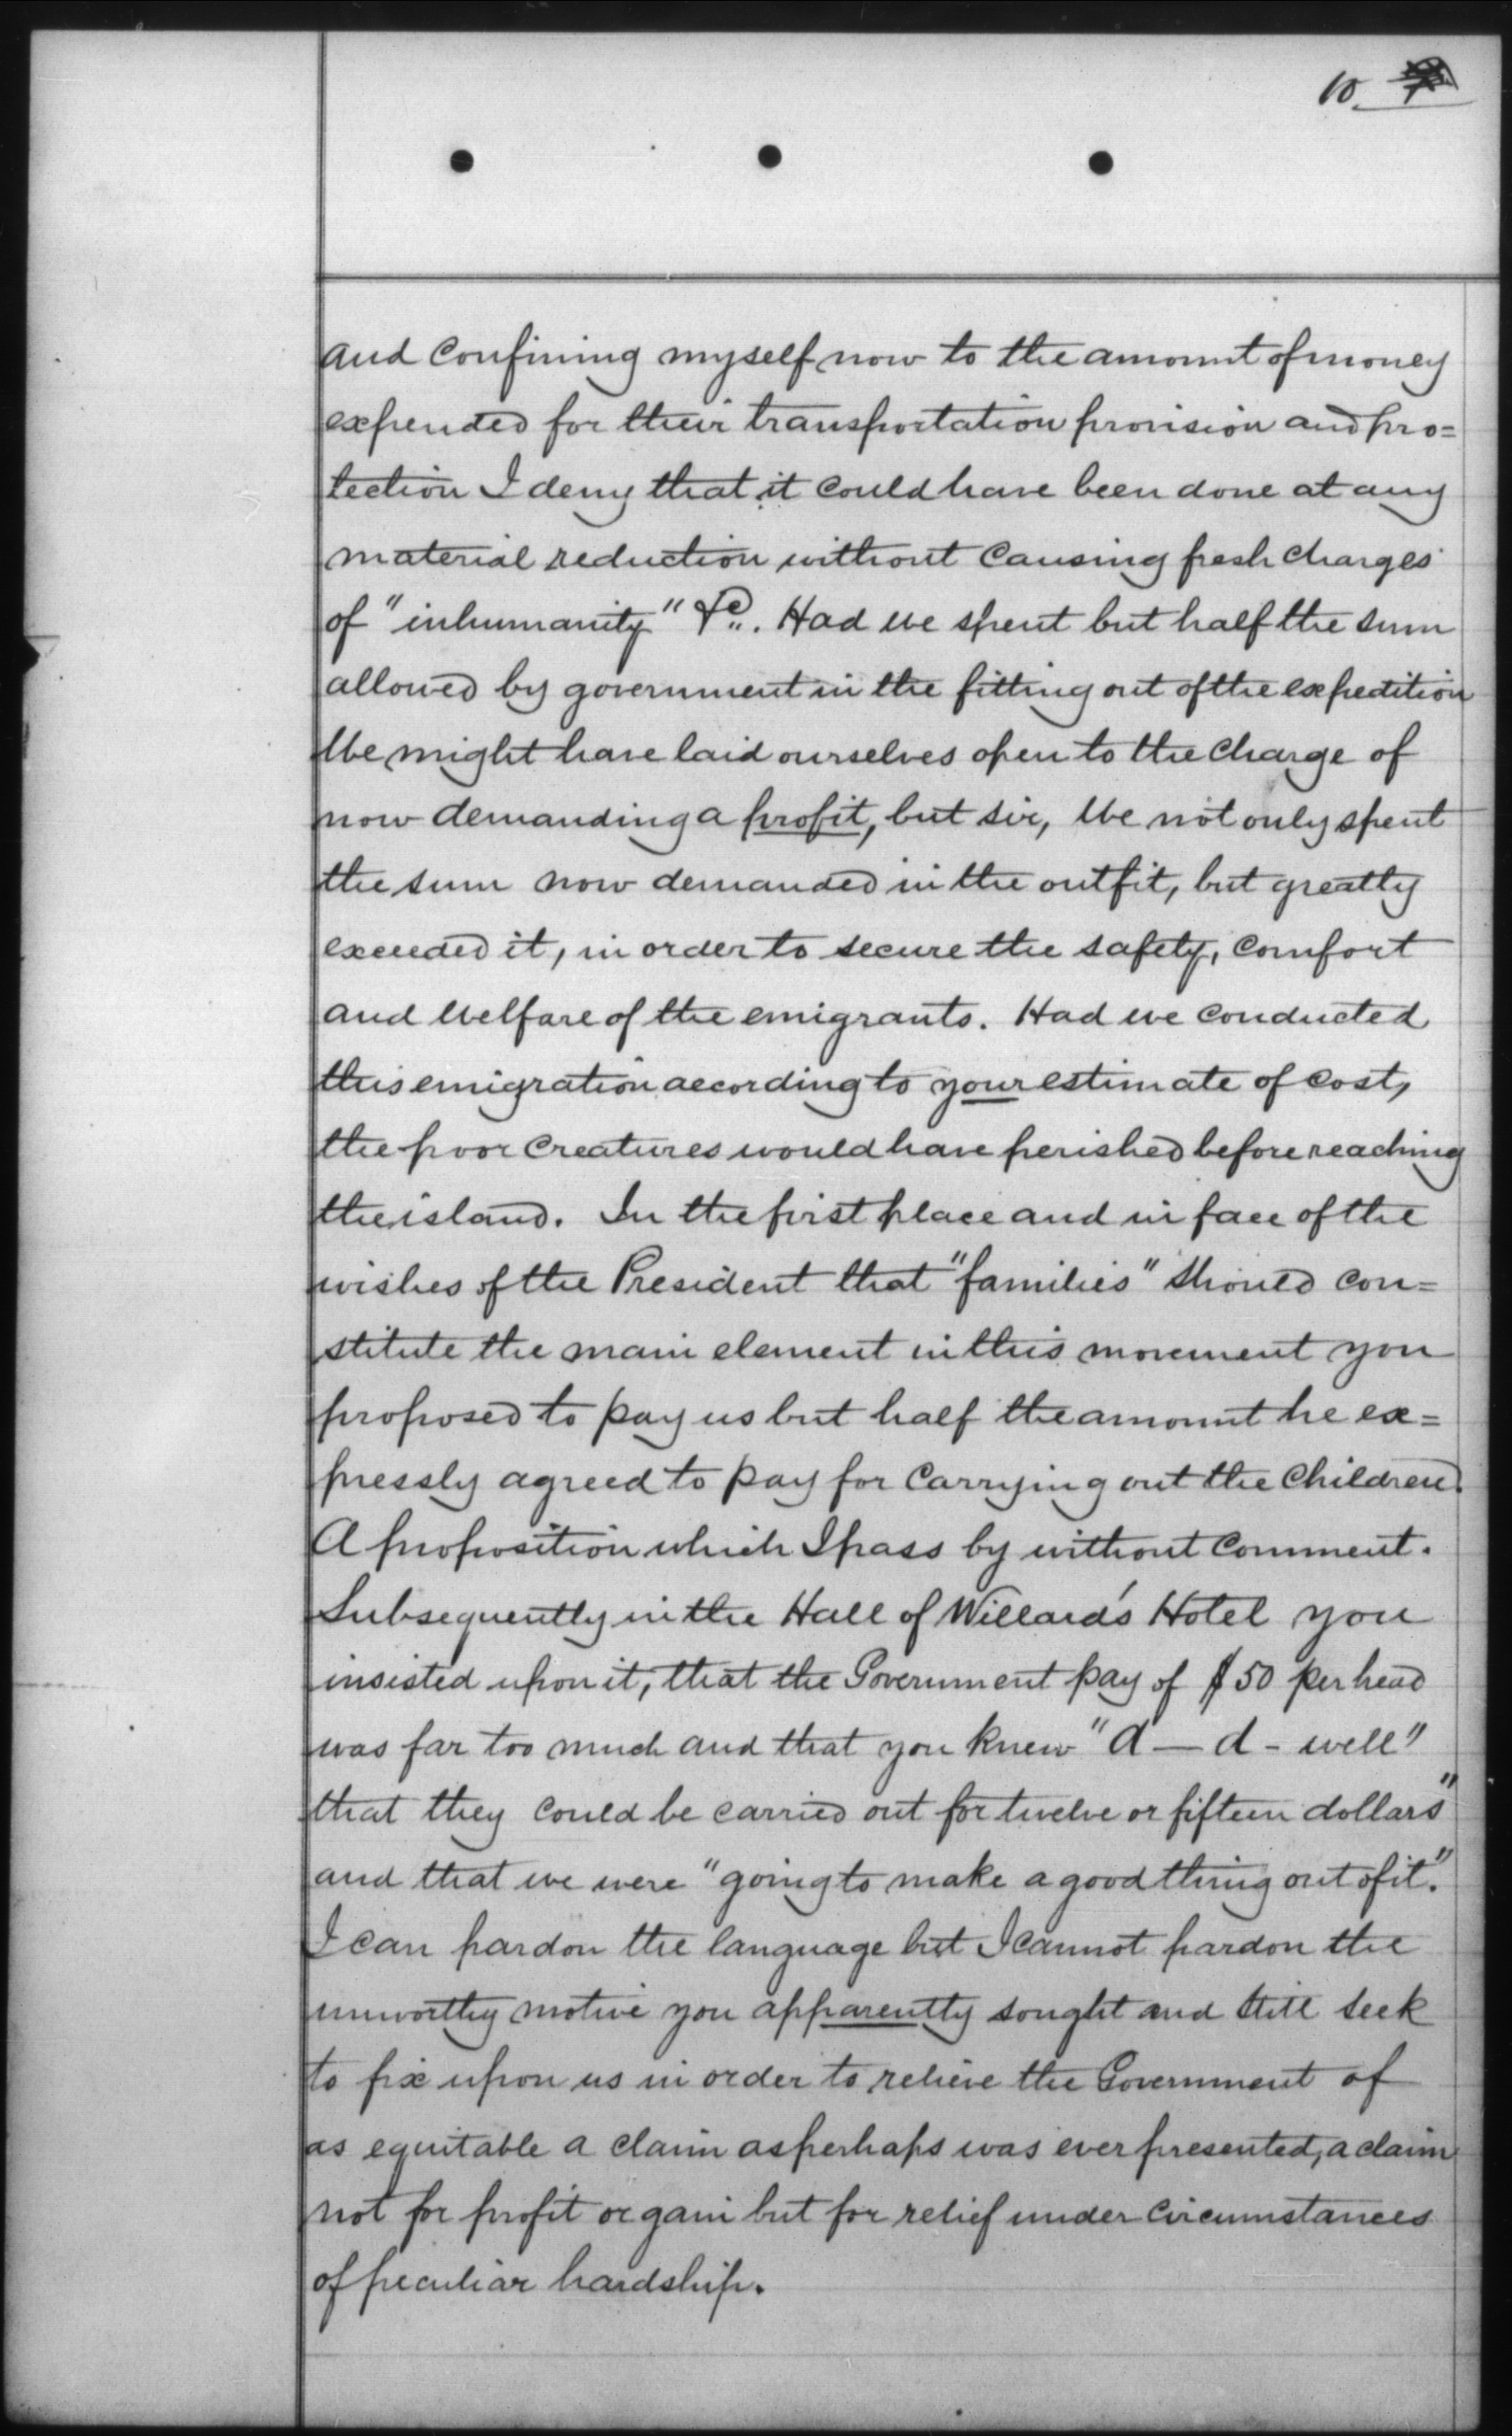 10
and confining myself now to the amount of money
expended for their transportation provision and pro=
tection I deny that it could have been done at any
material reduction without causing fresh charges
of "inhumanity" &c. Had we spent but half the sum
allowed by government in the fitting out of the expedition
We might have laid ourselves open to the charge of
now demanding a profit, but sir, We not only spent
the sum now demanded in the outfit, but greatly
exceeded it, in order to secure the safety, comfort
and Welfare of the emigrants. Had we conducted
this emigration according to your estimate of cost,
the poor creatures would have perished before reaching
the island. In the first place and in face of the
wishes of the President that "families" should con=
stitute the main element in this movement you
proposed to pay us but half the amount he ex=
pressly agreed to pay for carrying out the children.
A proposition which I pass by without comment.
Subsequently in the Hall of Willard's Hotel you
insisted upon it, that the Government pay of $50 per head
was far too much and that you knew "d—d - well"
that they could be carried out for twelve or fifteen dollars"
and that we were "going to make a good thing out of it."
I can pardon the language but I cannot pardon the
unworthy motive you apparently sought and still seek
to fix upon us in order to relieve the Government of
as equitable a claim as perhaps was ever presented, a claim
not for profit or gain but for relief under circumstances
of peculiar hardship.